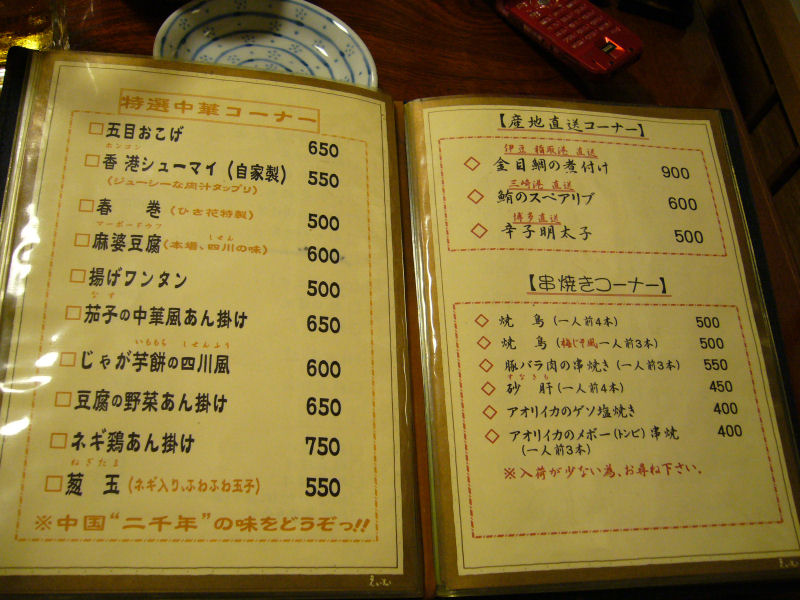 特選中華コーナー
□五目おこげ 650
ホンコン
□香港シューマイ（自家製） 550
（ジューシーな肉汁タップリ）
□春　巻（ひさ花特製） 500
マーボードウフ　しせん
□麻婆豆腐（本場、四川の味） 600
□揚げワンタン 500
なす
□茄子の中華風あん掛け 650
いももち　しせんふう
□じゃが芋餅の四川風 600
□豆腐の野菜あん掛け 650
□ネギ鶏あん掛け 750
ねぎたま
□葱　玉（ネギ入り、ふわふわ玉子） 550
※中国“二千年”の味をどうぞっ!!
【産地直送コーナー】
伊豆 稲取港 直送
◇金目鯛の煮付け 900
三崎港 直送
◇鮪のスペアリブ 600
博多直送
◇辛子明太子 500
【串焼きコーナー】
◇焼　鳥（一人前4本） 500
◇焼　鳥（梅じそ風一人前3本） 500
◇豚バラ肉の串焼き（一人前3本） 550
すなぎも
◇砂　肝（一人前4本） 450
◇アオリイカのゲソ塩焼き 400
◇アオリイカのメボー（トンビ）串焼 400
（一人前3本）
※入荷が少ない為、お尋ね下さい。